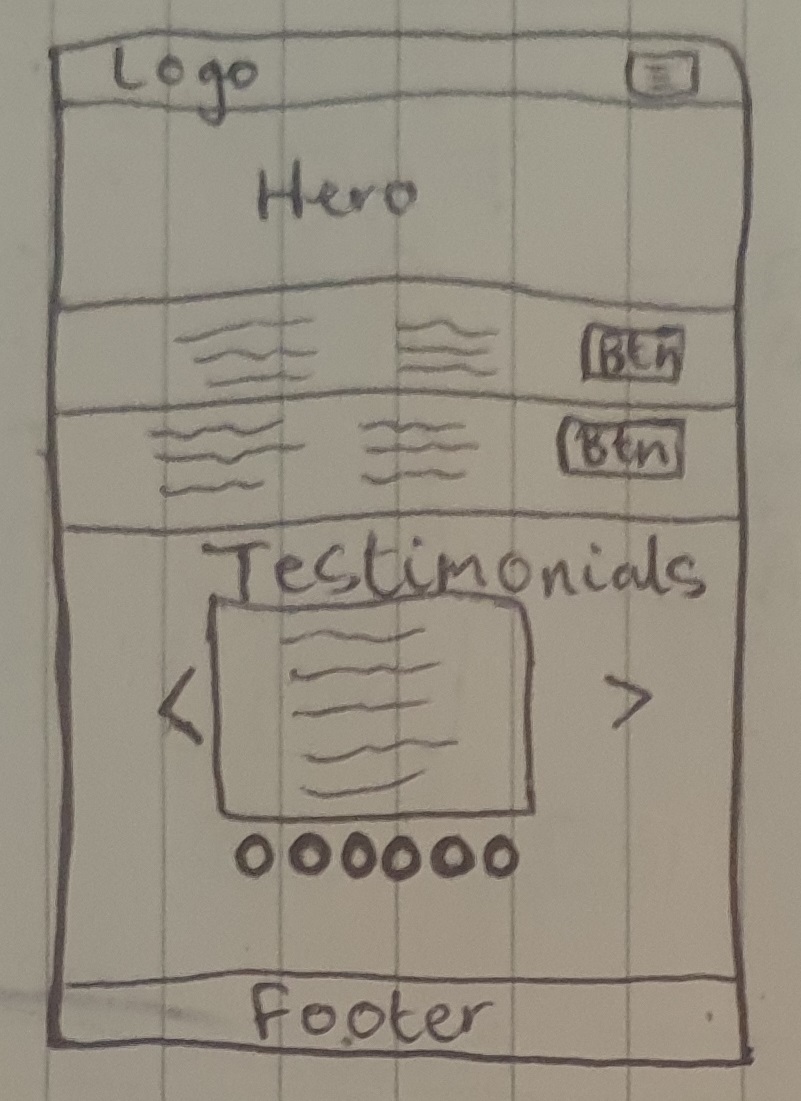 Logo
Hero
Btn
Btn
Testimonials
< >
Footer